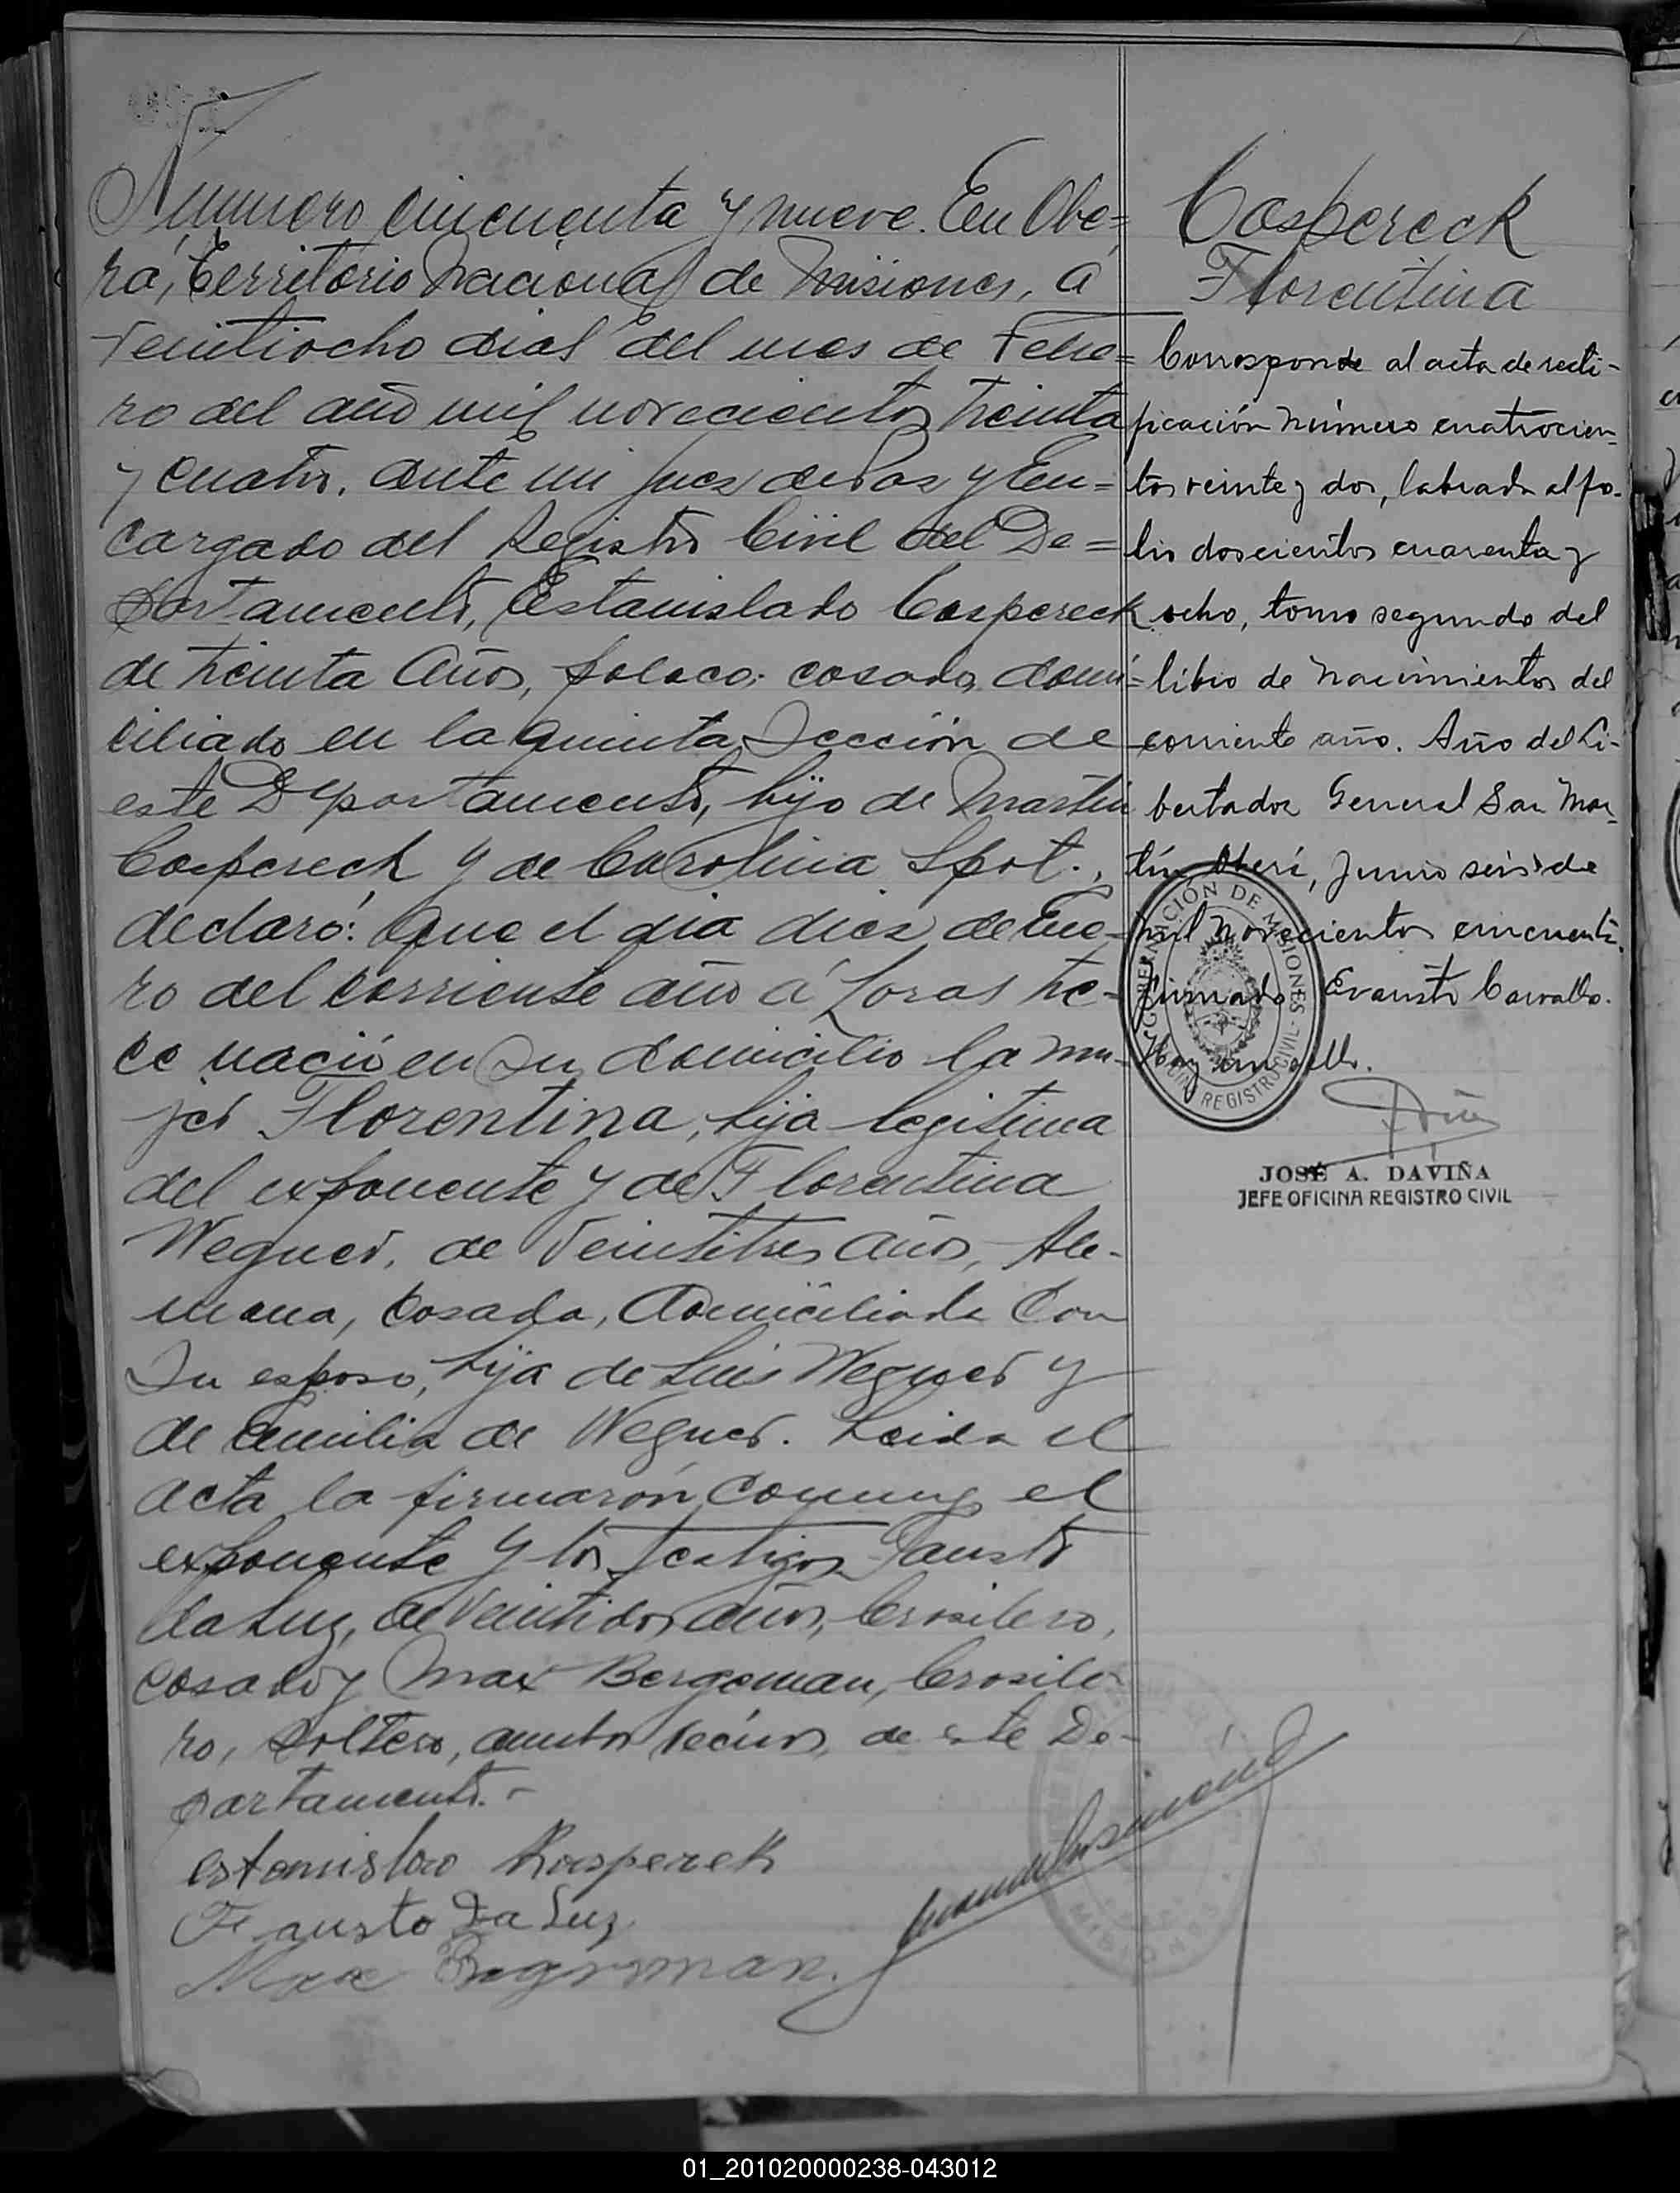 Número cincuenta y nueve. En Obe=
rá, Territorio Nacional de Misiones, a
veintiocho dias del mes de Febre=
ro del año mil novecientos treinta
y cuatro. ante mi Juez de Paz y En=
cargado del Registro Civil del De=
partamento, Estanislado Caspereck
de treinta Años, polaco; casado, domi=
ciliado en la quinta Sección de
este Departamento, hijo de Martin
Caspereck y de Carolina Spot.,
declaró: Que el dia diez de Ene-
ro del corriente año á horas tre-
ce nació en su domicilio la mu-
jer Florentina, hija legitima
del exponente y de Florentina
Wegner, de veintitres años, Ale-
mana, Casada, domiciliada Con
Su esposo, hija de Luis Wegner y
de Emilia de Wegner. Leida el
acta la firmarón conmig el
exponente y los testigos Fausto
da Luz, de veintidos años, brasilero,
casado y Max Bergeman, brasile-
ro, soltero, ambos vecinos de este De-
partamento.-
estanislao Kasperek
Fausto Da Luz
Max Bergman.
Caspereck
Florentina
Corresponde al acta de recti-
ficación número cuatrocien-
tos veinte y dos, labrada al fo-
lio doscientos cuarenta y
ocho, tomo segundo del
libro de nacimientos del
corriente año. Año del Li-
bertador General San Mar-
tín Oberá, Junio seis de
mil novecientos cincuenta.
firmado Evaristo Carvallo.
Hay un sello.
GOBERNACIÓN DE MISIONES
REGISTRO CIVIL
JOSÉ A. DAVIÑA
JEFE OFICINA REGISTRO CIVIL
01_201020000238-043012